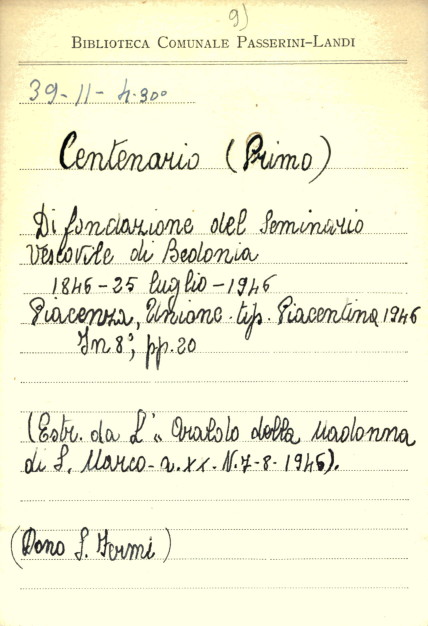 9)
BIBLIOTECA COMUNALE PASSERINI-LANDI
39-11-4.30°
Centenario (Primo)
Di fondazione del Seminario
Vescovile di Bedonia
1846-25 luglio-1946
Piacenza, Unione. tip. Piacentina 1946
In 8°, pp. 20
(Estr. da L'" Araldo della Madonna
di S. Marco - a. XX. N. 7-8-1946).
(Dono S. Fermi)